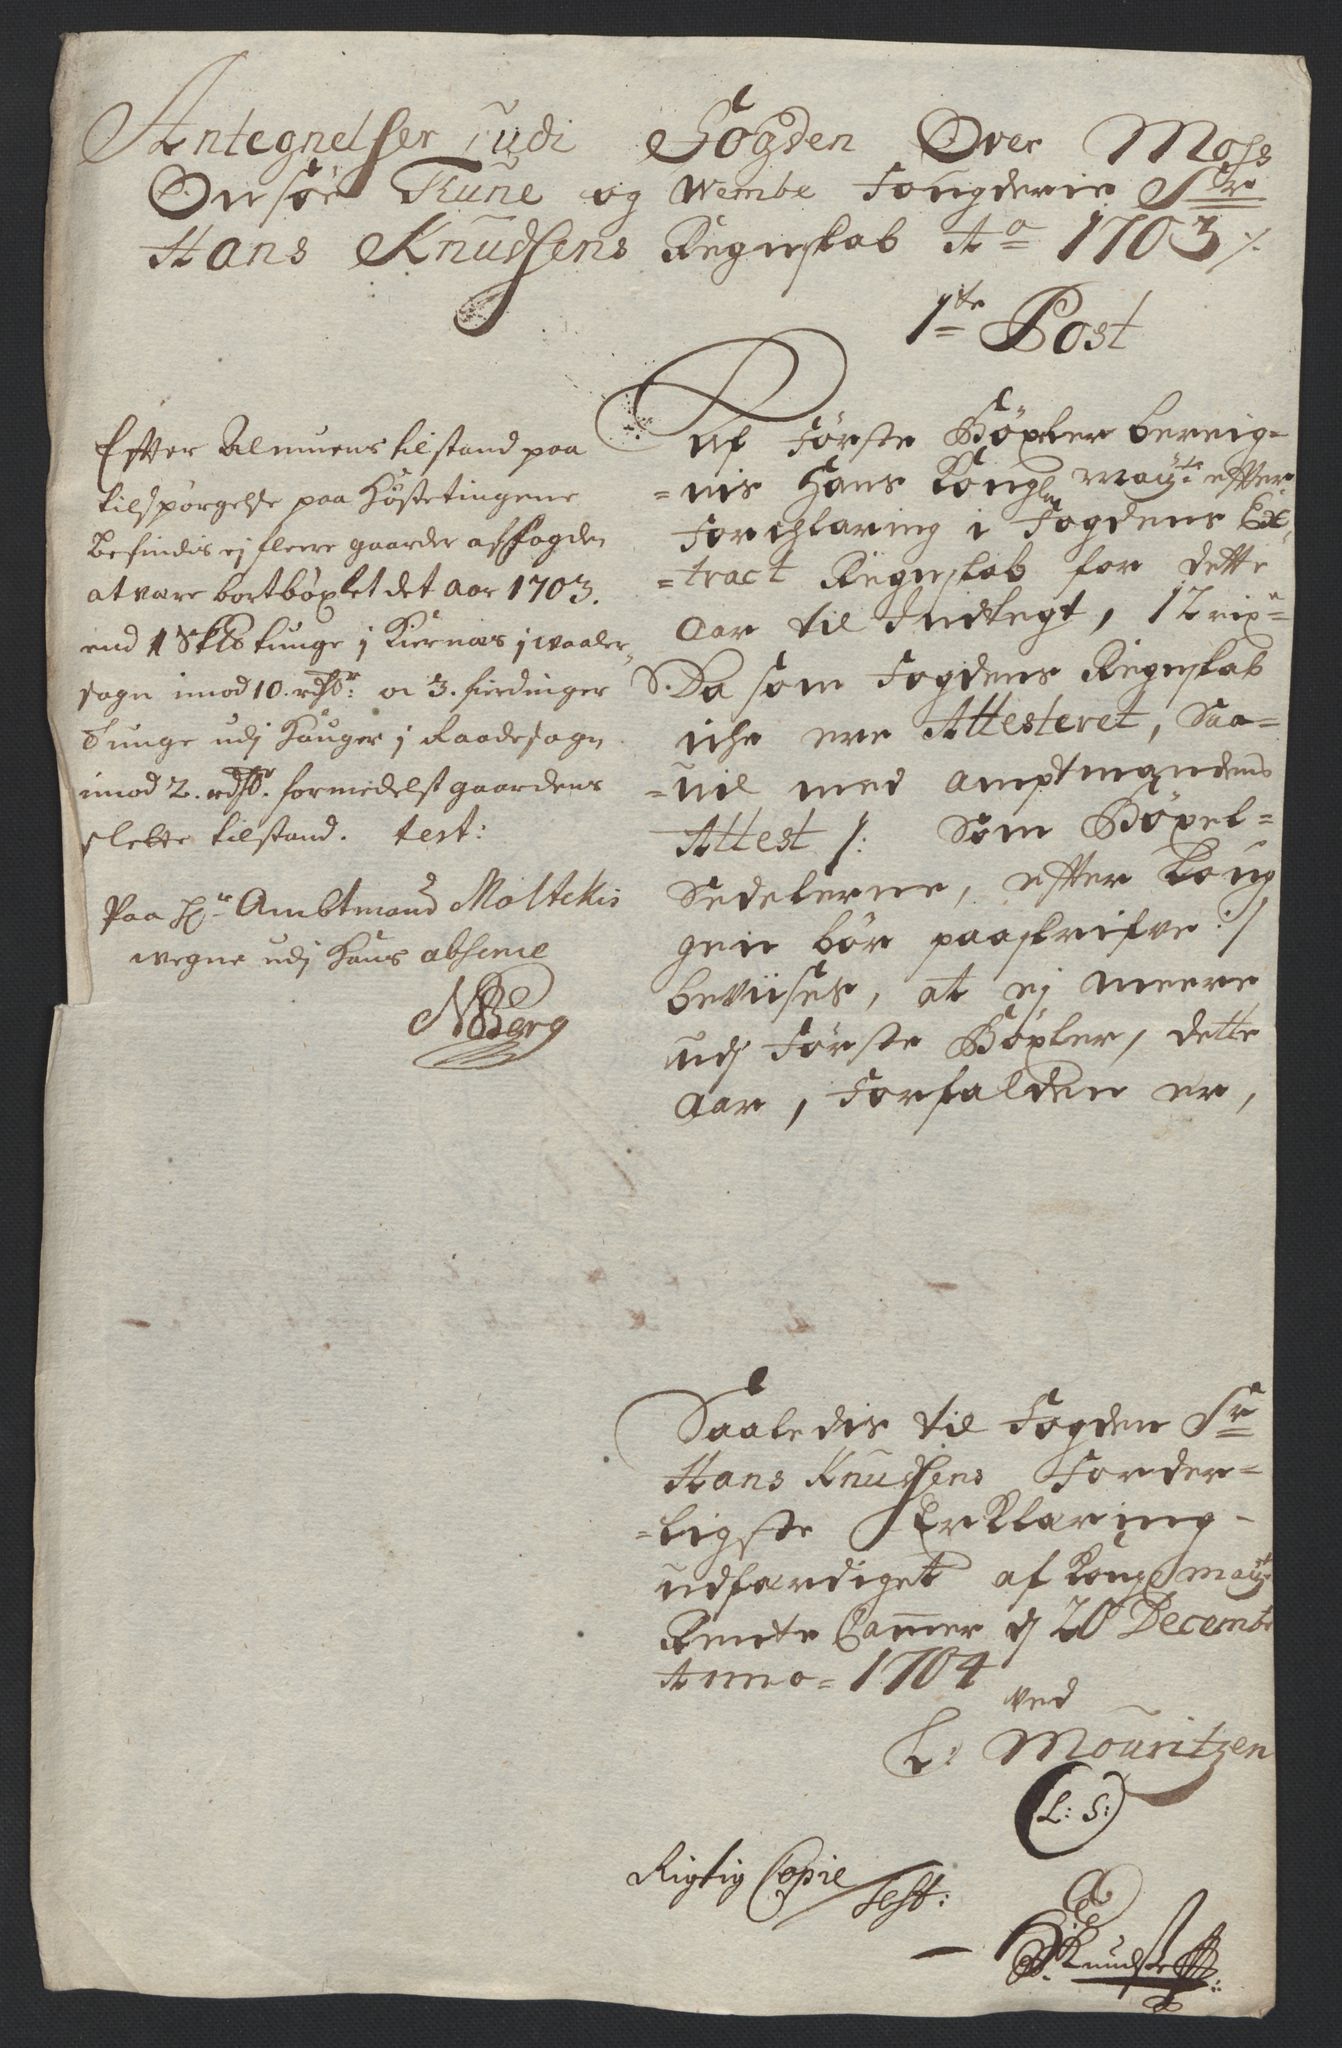 Antegnelser udi Fogden Over Moss
Onsøe Tune og Wembe Fougderie Sr
Hans Knudsens Regnskab Ao 1703 ⁒
1te Post
Af Første Böxler bereig-
-nis Hans Kongl Mayts effter
Forchlaring i Fogdens Ex-
-tract Regnskab for dette
Aar til Indtegt, 12 rixr
Da som Fogdens Regnskab
iche ere Attesteret, Saa-
-vel med Amptmandens
Attest /: Som Böxel-
Sedelerne, efter Loug
gen bør paaskrifve :/
beviises, at ej meere
udj Første Böxler, dette
Aar, Forfalden er,
Effter Almuens tilstand paa
tilspörgelse paa Höstetingene
Befindis ej fleere gaarder af Fogden
at være bortböxlet det Aar 1703.
end 1 Skb tunge j Kiernes j Waaler-
sogn imod 10. rdr: oc 3. fierdinger
Tunge udj Hauger j Raadesogn
imod 2. rdr. formedelst gaardens
slette tilstand. test:
Paa Hr Ambtmand Moltckis
wegne udj Hans absence
NBerg
Saaledis til Fogden Sr
Hans Knudsens Forder-
-ligste Erklaring
udfærdiget af Kongl Mayts
Rente Cammer dj 20 Decembr
Anno = 1704
ved
L: Mouritzen
(L: S:)
Rigtig Copie
Test:
Knudsen